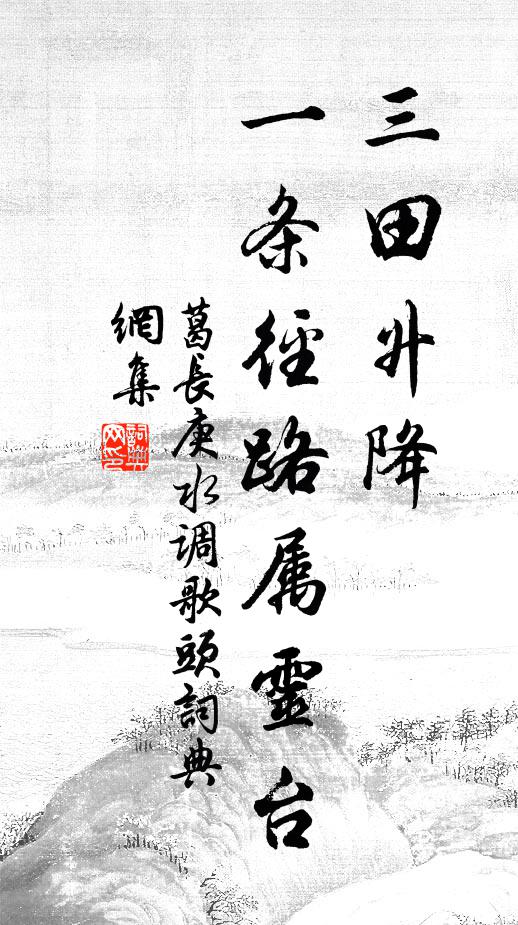 三田升降
一条徑路属靈台
葛長庚水调歌頭詞典
網集